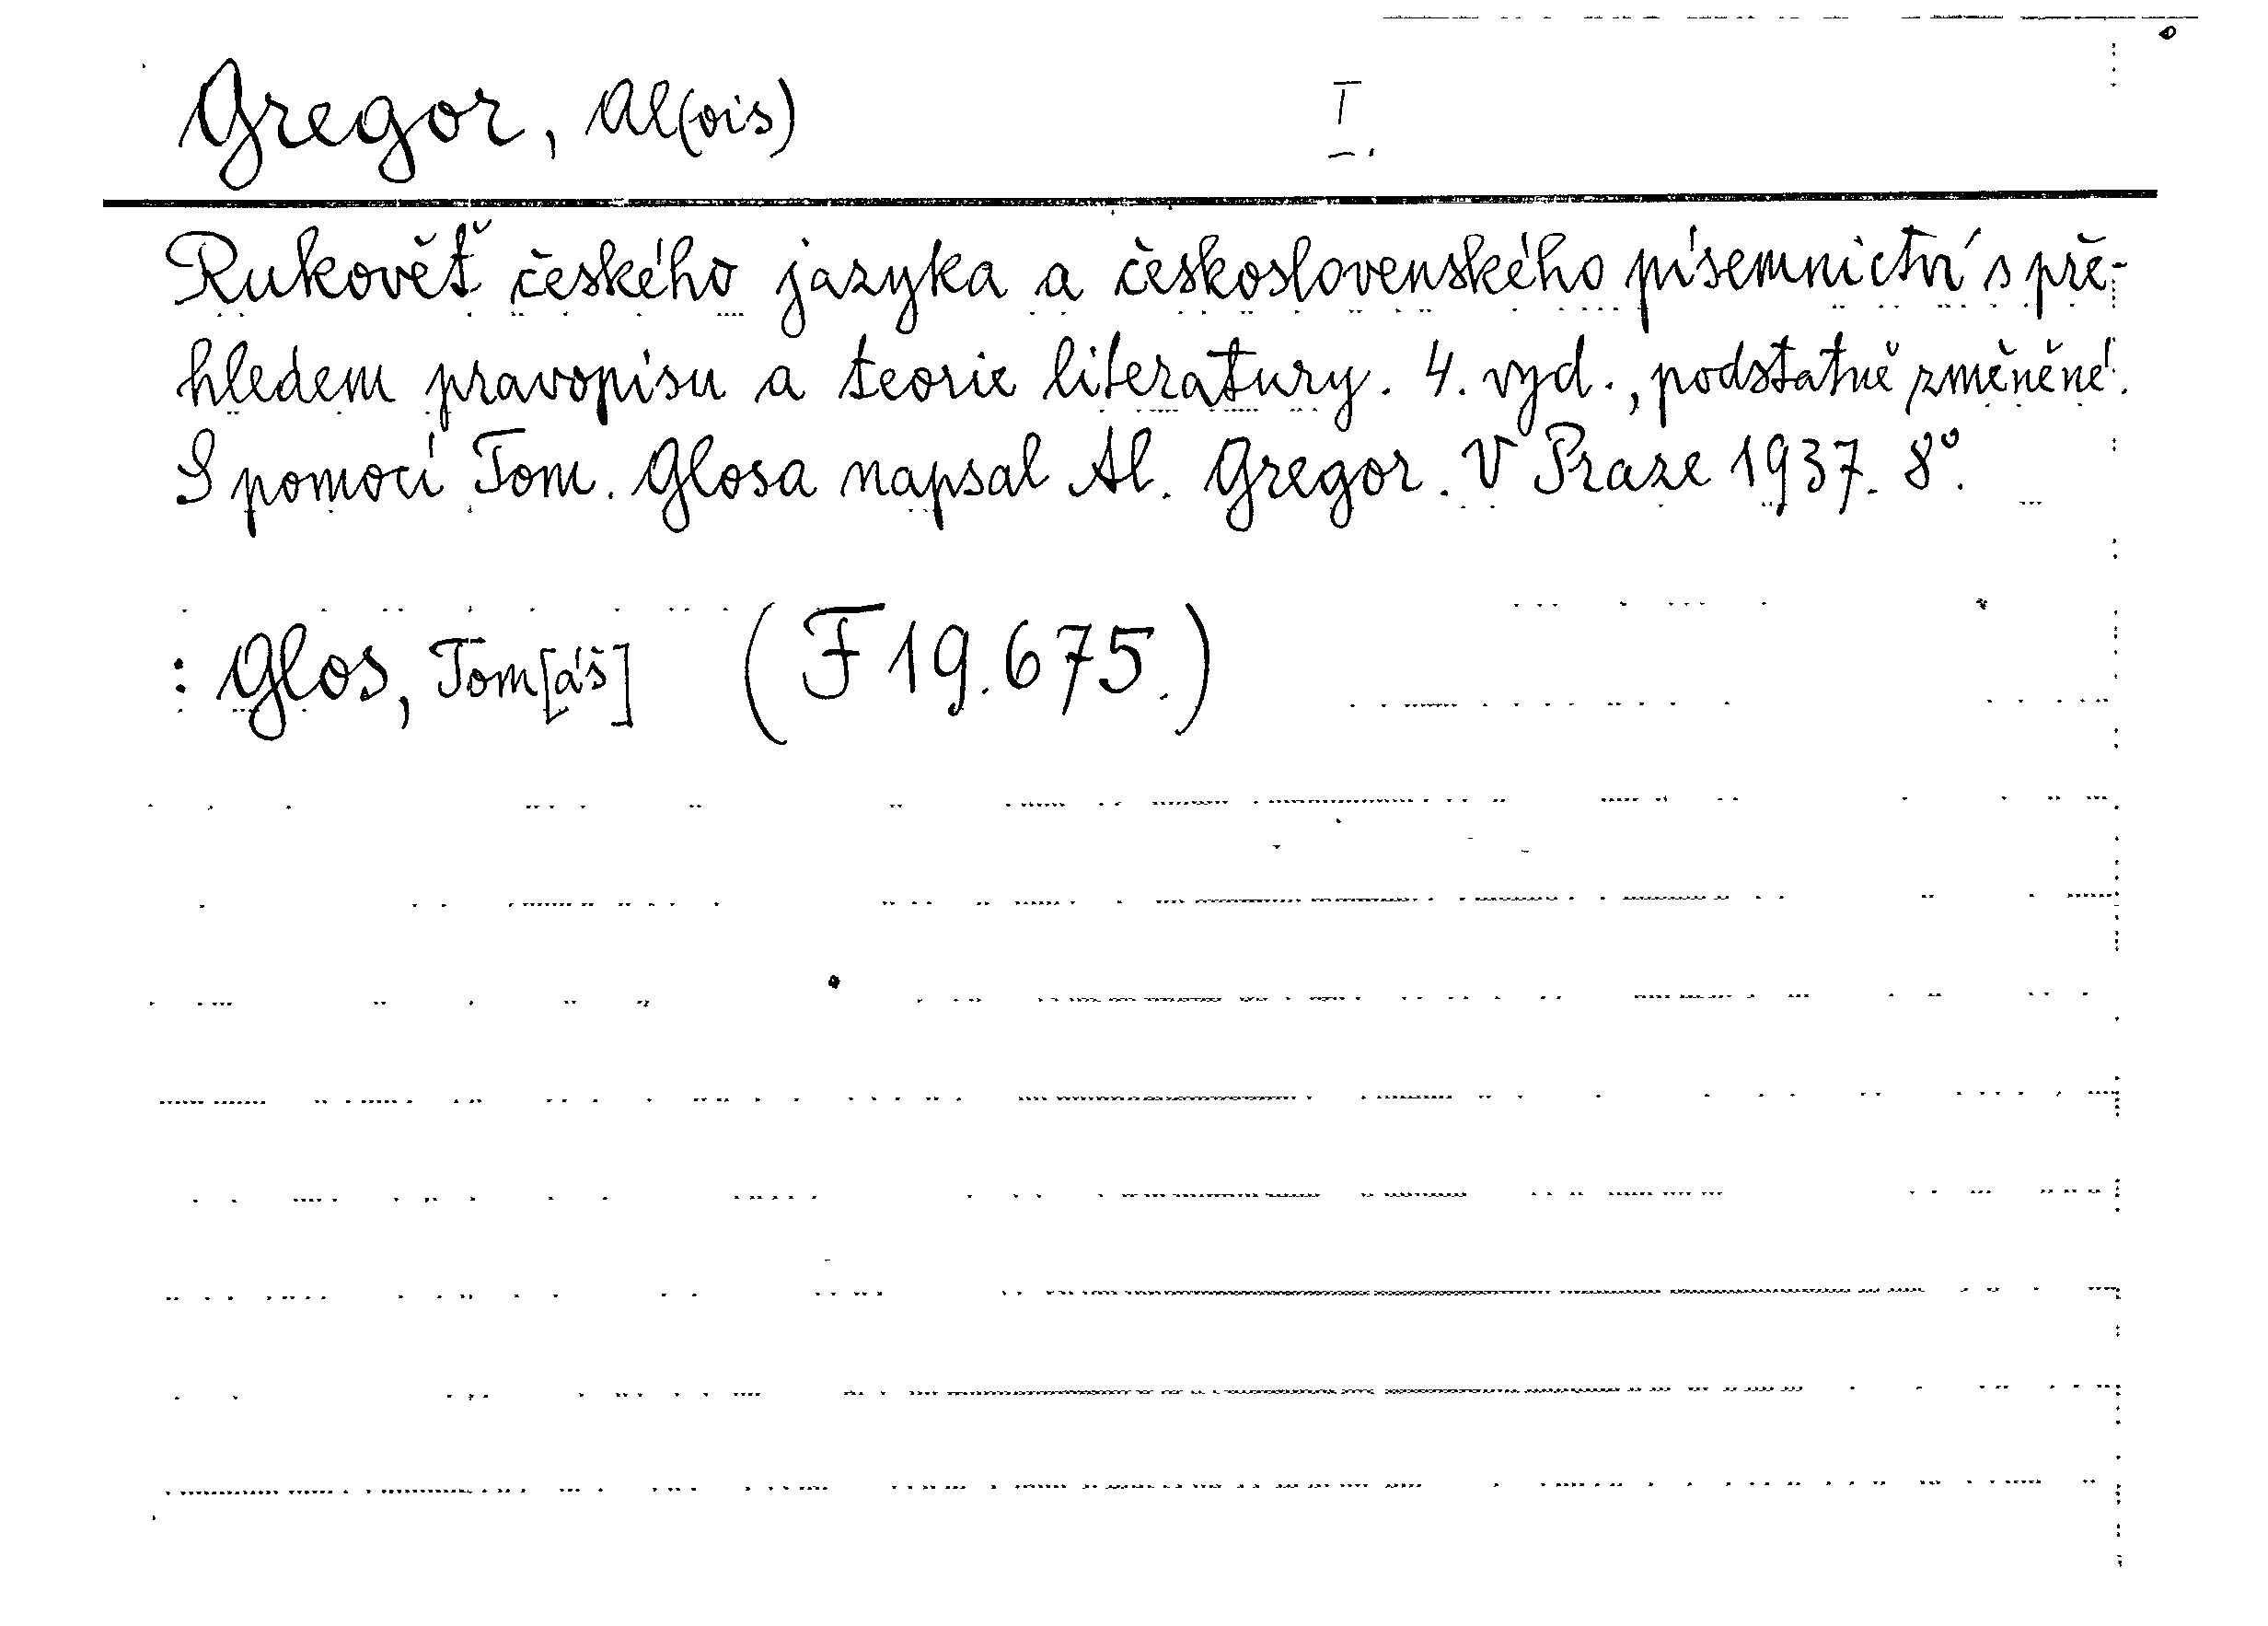 Gregor, Al(ois) I.
Rukověť českého jazyka a československého písemnictví s pře-
hledem pravopisu a teorie literatury. 4. vyd., podstatně změněné.
S pomocí Tom. Glosa napsal Al. Gregor. V Praze 1937. 8°.
: Glos, Tom[áš] (F 19.675.)